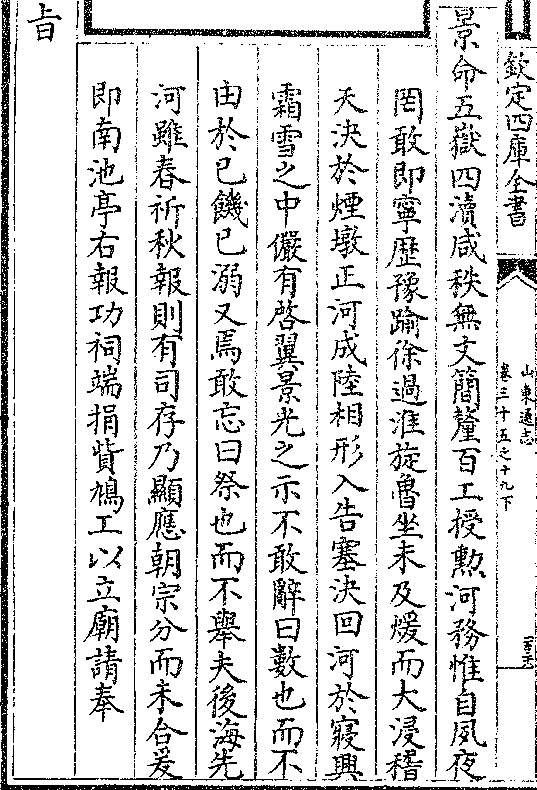 欽定四庫全書
山東通志
卷三十五之十九下
景命五嶽四瀆咸秩無文簡釐百工授勲河務惟自夙夜
罔敢即寧歴豫踰徐過淮旋魯坐未及煖而大浸稽
天決於煙墩正河成陸相形入告塞決回河於寢興
霜雪之中儼有啓翼景光之示不敢辭曰數也而不
由於已饑已溺又焉敢忘曰祭也而不舉夫後海先
河雖春祈秋報則有司存乃顯應朝宗分而未合爰
即南池亭右報功祠端捐貲鳩工以立廟請奉
旨